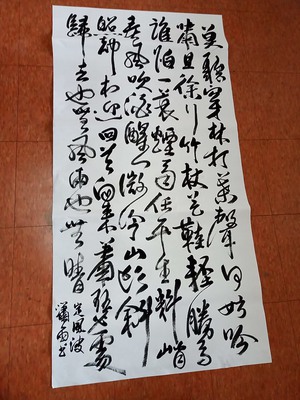 莫聽穿林打葉聲何妨吟
嘯且徐行竹杖芒鞋輕勝馬
誰怕一蓑煙雨任平生料峭
春風吹酒醒微冷山頭斜
照却相迎回首向來蕭瑟處
歸去也無風雨也無晴
定風波